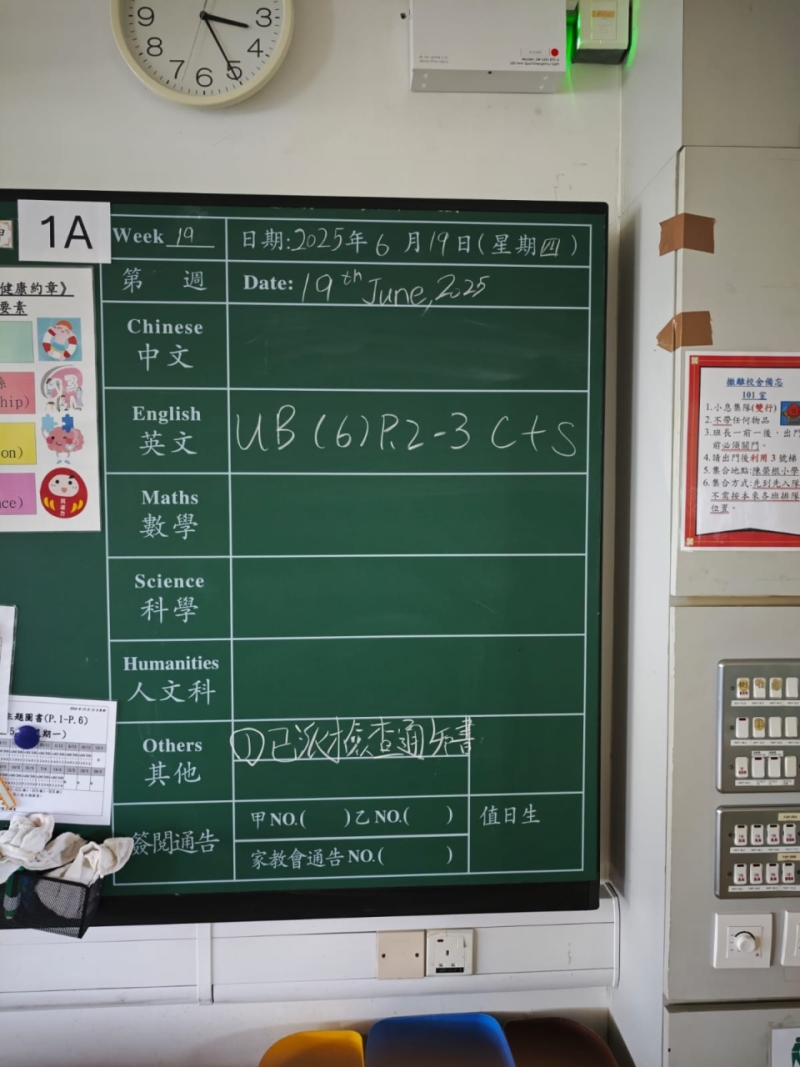 9 3 8 4 7 6 5
1A
Week 19
日期:2025年6月19日(星期四)
第 週
Date: 19th June, 2025
Chinese
中文
English
英文
UB (6) P.2-3 C+S
Maths
數學
Science
科學
Humanities
人文科
Others
其他
①已派檢查通知書
簽閱通告
甲NO.( )乙NO.( )
家教會通告NO.( )
值日生
健康約章》
要素
hip)
on)
ce)
主題圖書(P.1-P.6)
撤離校舍備忘
101室
1.小息集隊(雙行)
2.不帶任何物品
3.班長一前一後，出門
前必須關門。
4.請出門後利用3號梯
5.集合地點:陳榮根小學
6.集合方式:先到先入隊
不需按本來各班排隊
位置。